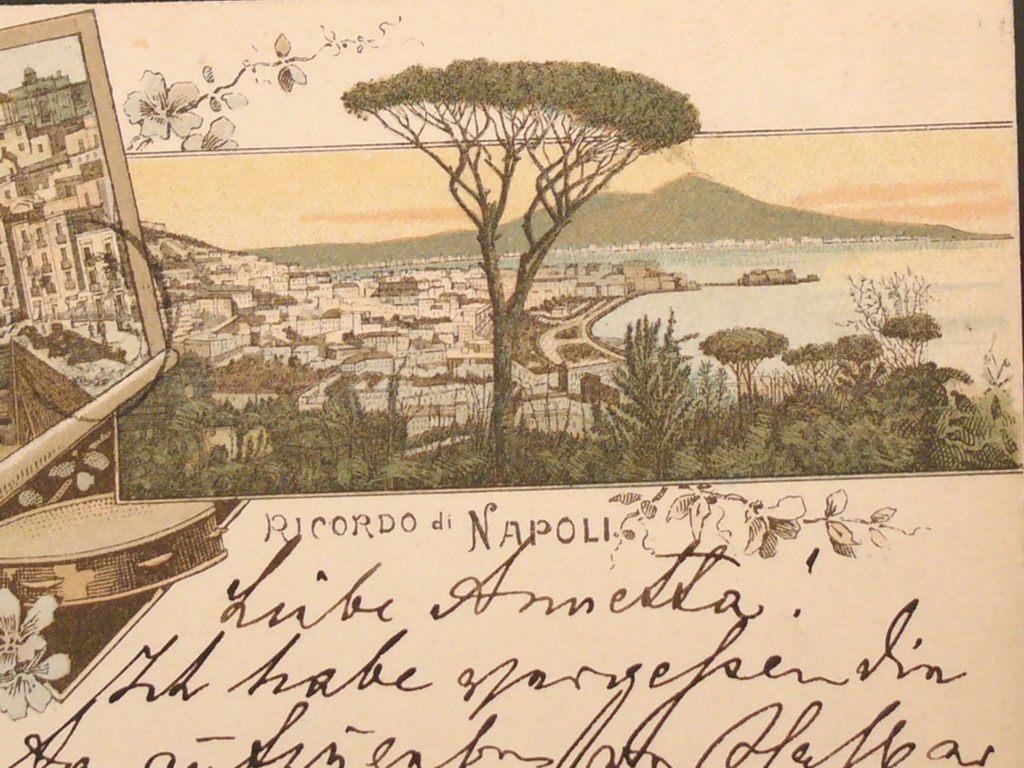 RICORDO di NAPOLI.
Liebe Annetta!
Ich habe vergeßen die